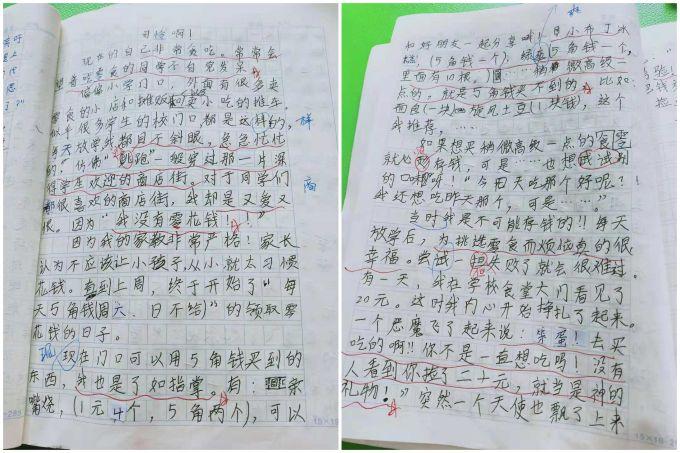 可惜啊!
现在的自己非常贪吃。常常会
望着吃零食的同学不自觉发呆。
小学门口,
零食的小店和摊贩和卖小吃的推车。
似乎很多学生的校门口都是这样的,
样
每天放学我都目不斜眼,急急忙忙
的,仿佛“逃跑”一般穿过那一片深
得学生欢迎的商店街。对于同学们
商
都很喜欢的商店街,我却是又爱又
恨。因为“我没有零花钱!!”
因为我的家教非常严格!家长
认为不应该让小孩子从小就太习惯
花钱。直到上周,终于开始了“每
天5角钱(周六、日不给)”的领取零
花钱的日子。
现在门口可以用5角钱买到的
现
东西,我也是了如指掌。有:
嘴烧,(1元4个,5角两个),可以
和好朋友一起分享哦!小布丁冰
糕!(5角钱一个),绿(5角一个,
里面有口哨。)稍微高级一
点的,就是5角钱买不到的,比如
面包(一块)旋风土豆(1块钱),这个
我推荐,……
如果想买稍微高级一点的食零
就必存钱,可是……也想试试别
的口味呀!“今天吃那个好呢?!
我还想吃昨天那个,可是……”。
当时我是不可能存钱的!!每天
放学后,为挑选零食而烦恼真的很
幸福。尝试一但失败了就会很难过。
有一天,我在学校食堂大门看见了
20元。这时我内心开始挣扎了起来。
一个恶魔飞了起来说:笨蛋!去买
吃的啊!!你不是一直想吃吗!没有
人看到你捡了二十元,就当是神的
礼物!”突然一个天使也飘了上来